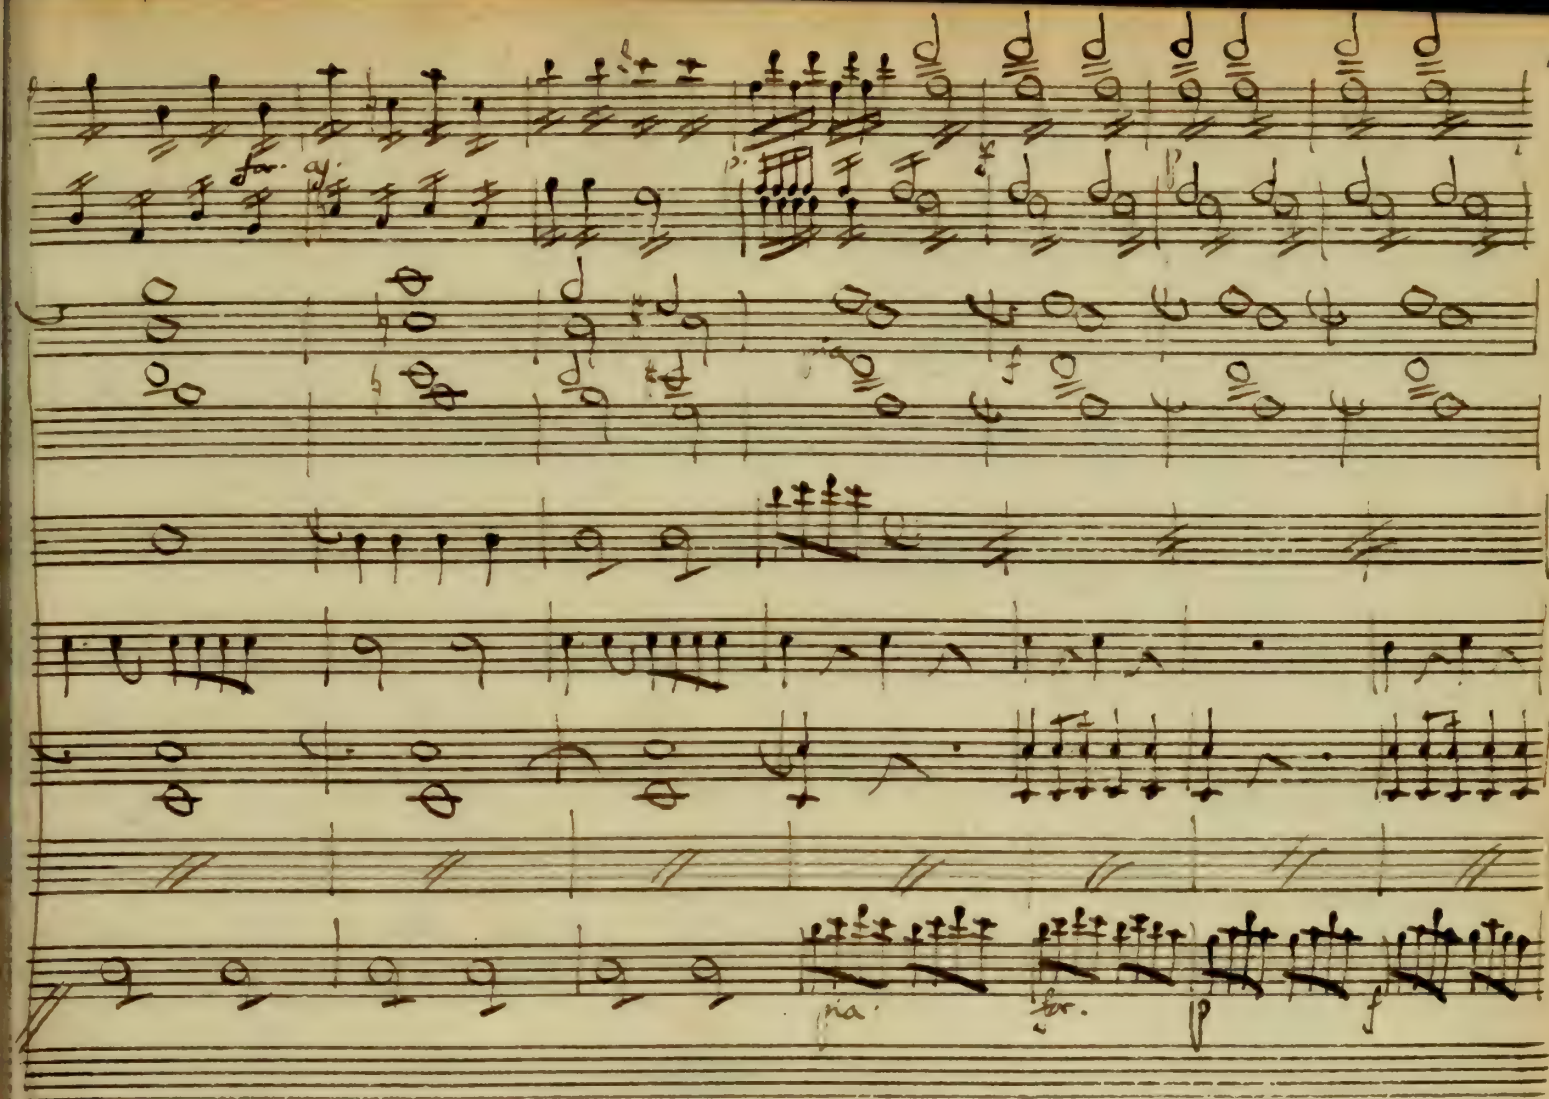 for.
p. f p
f
pia. for. p f